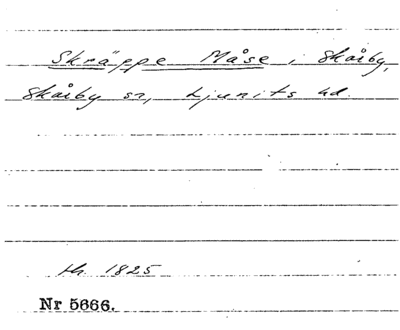 Skräppe Måse, Skårby,
Skårby sn, Ljunits hd.
1825
Nr 5666.